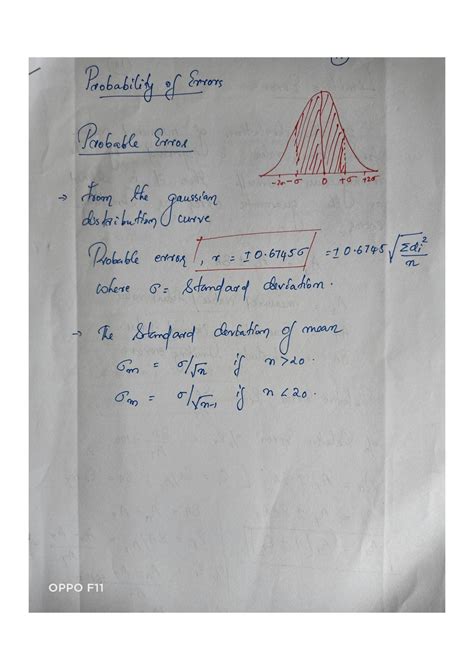 Probability of Errors
Probable Error
-2σ -σ 0 +σ +2σ
→ From the gaussian
distribution curve
Probable error, r = ± 0.6745σ = ± 0.6745 √(Σdi²/n)
where σ = Standard deviation.
→ The Standard deviation of mean
σm = σ/√n if n > 20.
σm = σ/√n-1 if n < 20.
OPPO F11